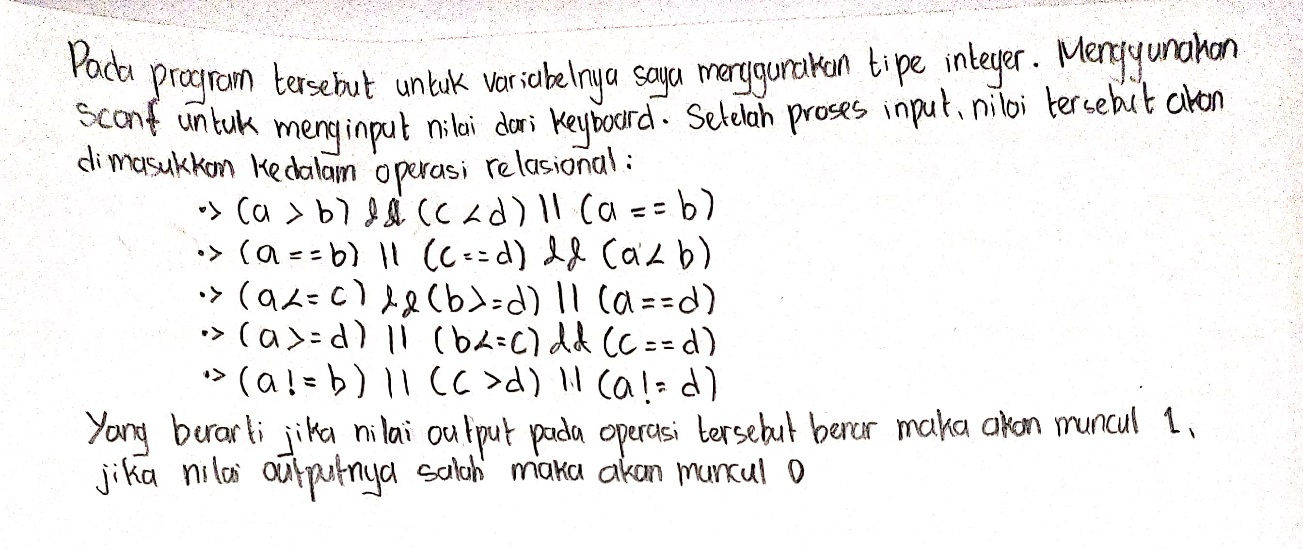 Pada program tersebut untuk variabelnya saya menggunakan tipe integer. Menggunakan
Scanf untuk menginput nilai dari keyboard. Setelah proses input, nilai tersebut akan
dimasukkan kedalam operasi relasional :
•> (a > b) && (c < d) || (a == b)
•> (a == b) || (c == d) && (a < b)
•> (a <= c) && (b >= d) || (a == d)
•> (a >= d) || (b <= c) && (c == d)
•> (a != b) || (c > d) || (a != d)
Yang berarti jika nilai output pada operasi tersebut benar maka akan muncul 1,
jika nilai outputnya salah maka akan muncul 0